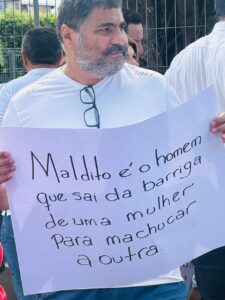 Maldito é o homem
que sai da barriga
de uma mulher
Para machucar
a outra.